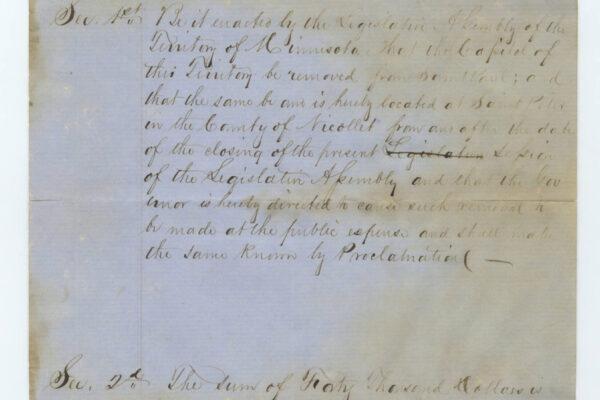 Sec. 1st. Be it enacted by the Legislative Assembly of the
Territory of Minnisota that the Capitol of
this Territory be removed from Saint Paul; and
that the same be and is hereby located at Saint Peter
in the County of Nicollet from and after the date
of the closing of the present Legislative Session
of the Legislative Assembly and that the Gov
ernor is hereby directed to cause such removal to
be made at the public expense and shall make
the same known by Proclamation
Sec. 2d. The sum of Forty Thousand Dollars is